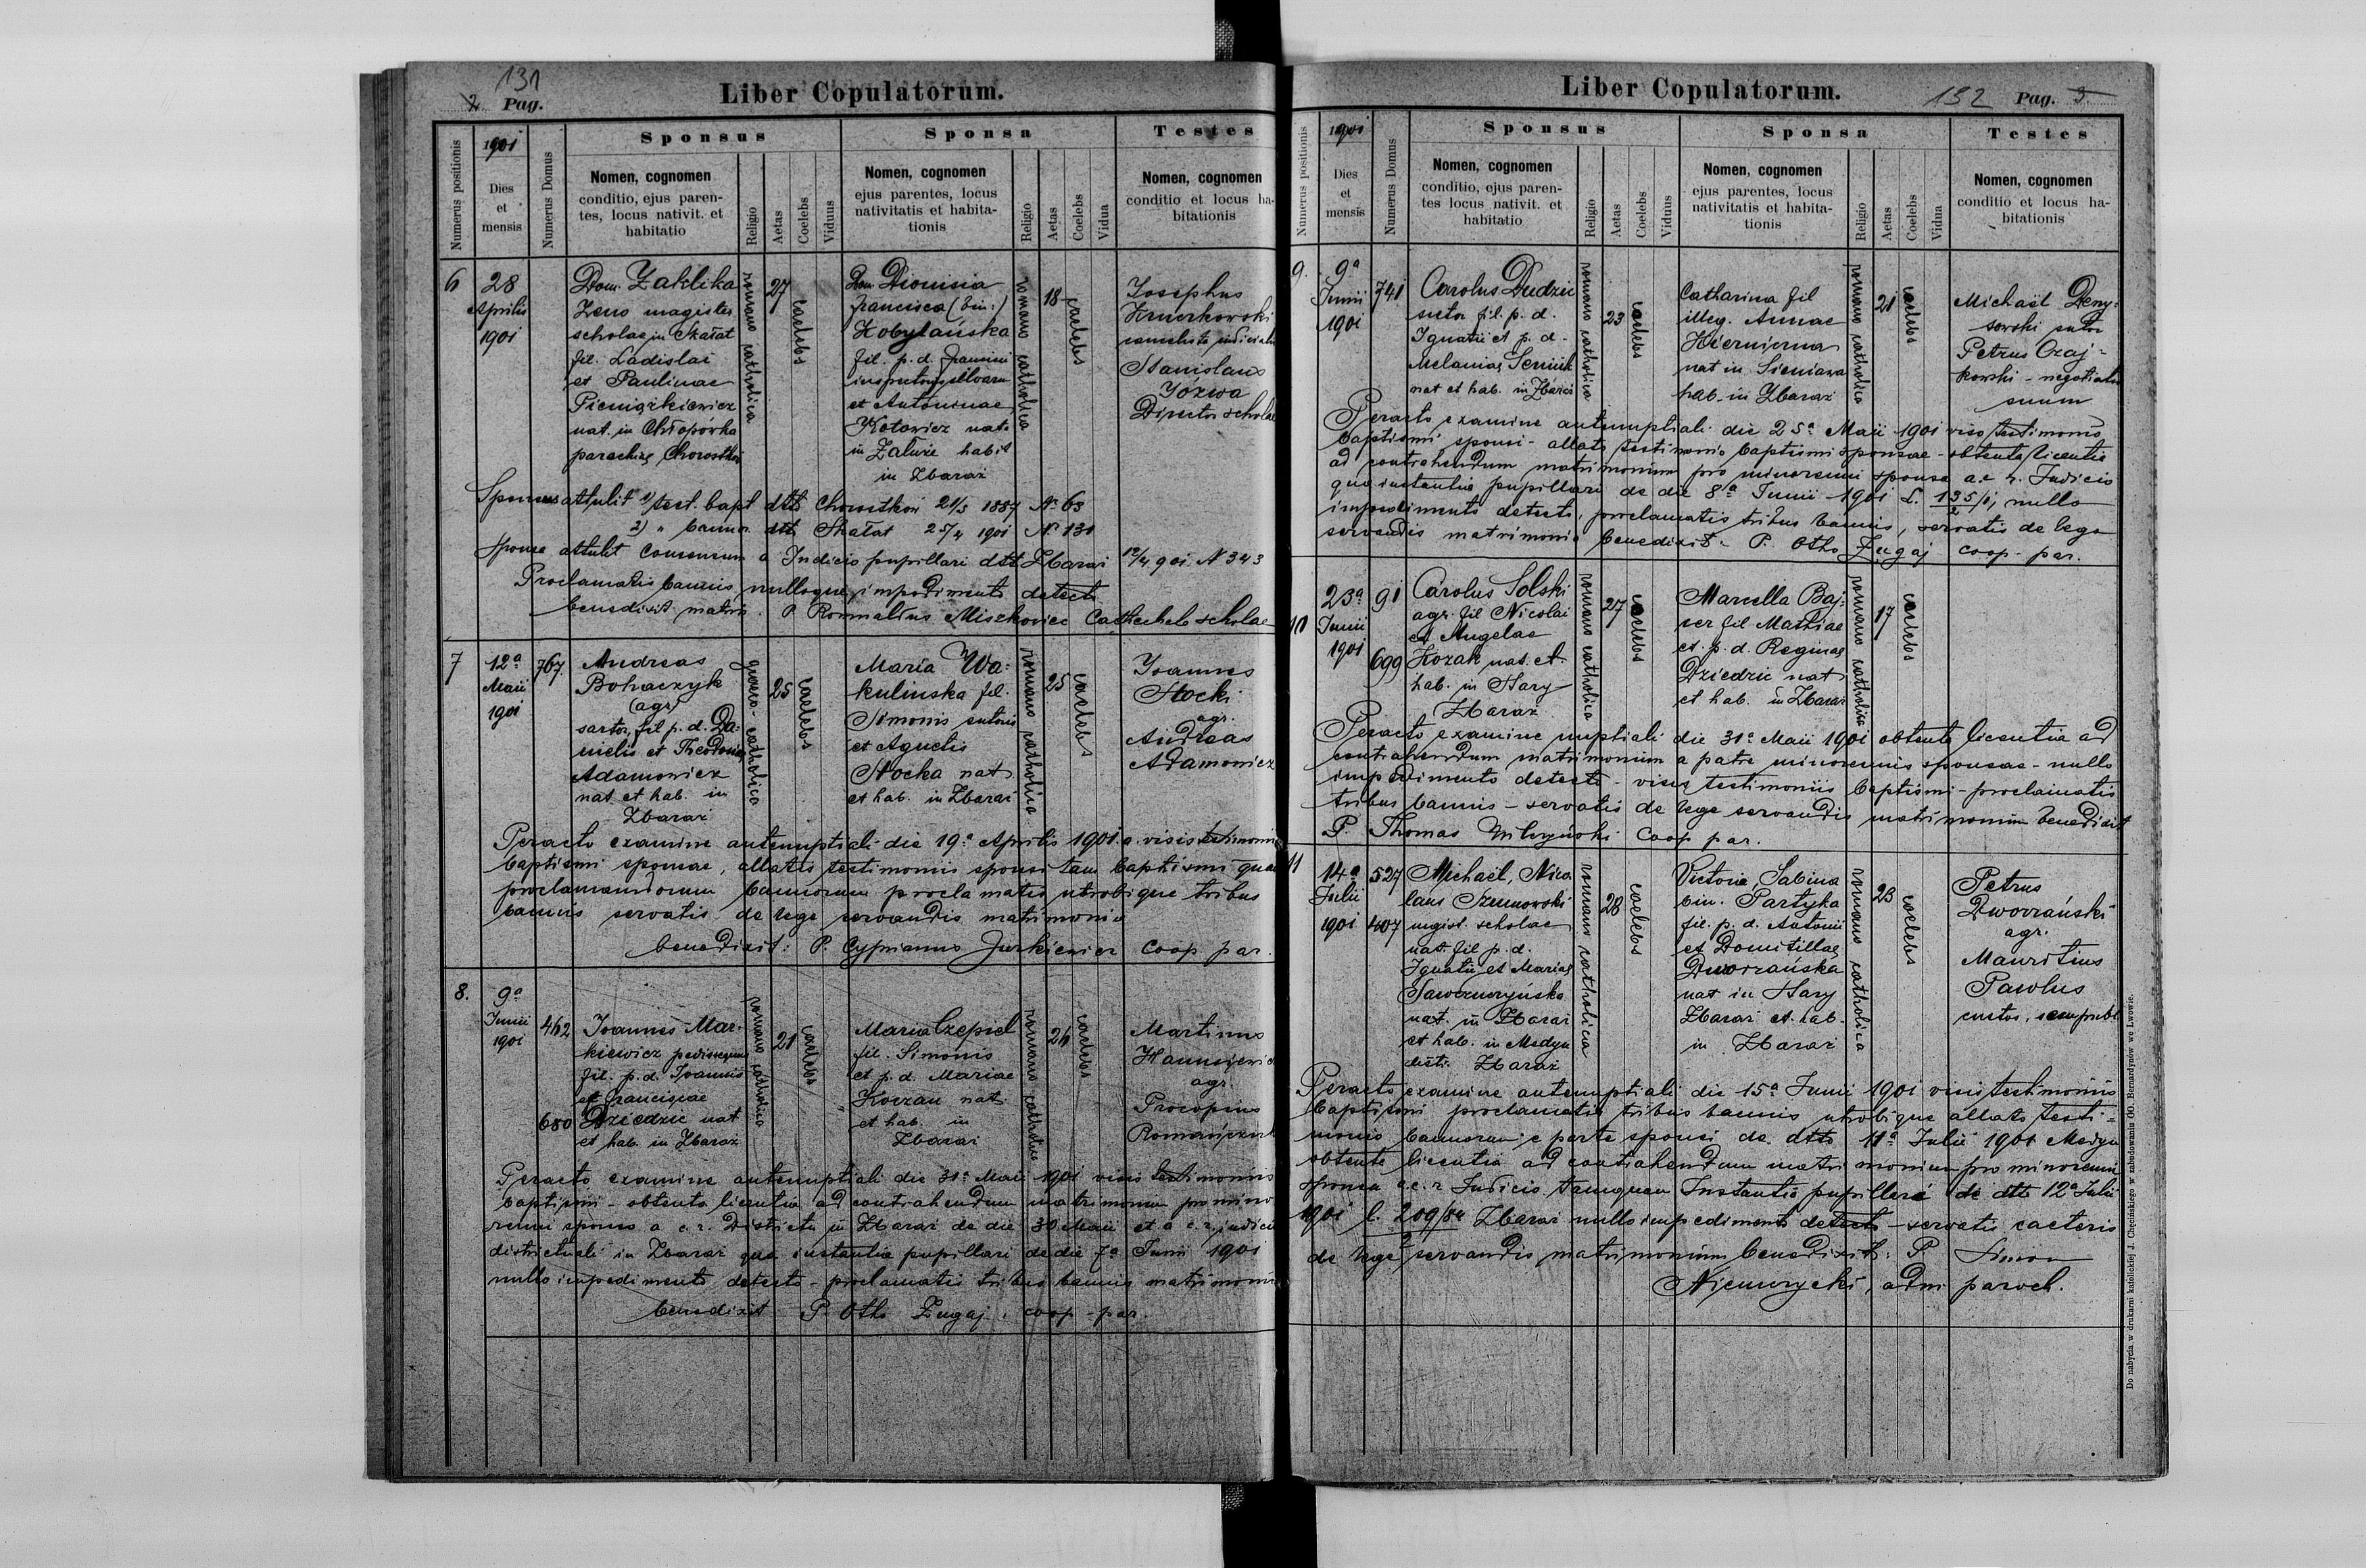 131
2 Pag.
Liber Copulatorum.
Numerus positionis
1901
Dies
et
mensis
Numerus Domus
Sponsus
Nomen, cognomen
conditio, ejus paren-
tes, locus nativit. et
habitatio
Religio
Aetas
Coelebs
Viduus
Sponsa
Nomen, cognomen
ejus parentes, locus
nativitatis et habita-
tionis
Religio
Aetas
Coelebs
Vidua
Testes
Nomen, cognomen
conditio et locus ha-
bitationis
6
28
Aprilis
1901
Dom. Zaklika
Zeno magister
scholae in Skałat
fil. Ladislai
et Paulinae
Pieniążkiewicz
nat. in Chłopówka
parochiae Chorostków
romano catholica
27
caelebs
Dom. Dionisia
Francisca (bin:)
Kobylańska
fil. p. d. Francisci
et Antoninae
Kotowicz nat.
in Załuże habit
in Zbaraż
romano catholica
18
caelebs
Josephus
cancelista judicialis
Stanislaus
Józwa
Director scholae
Sponsus attulit 1) test. bapt dtt Chorostków 21/5 1887 N. 63
2) " bannor. dtt Skałat 25/4 1901 N. 131
Sponsa attulit Consensum a Judicio pupillari dtt Zbaraż 12/4 901. N 343
Proclamatis bannis nulloque impedimento detecto
benedixit matrim. P. Romualdus Miszkowicz Cathecheta scholae
7
12a
Maii
1901
767.
Andreas
Bohaczyk
(agr)
sartor, fil p. d. Da-
nielis et Theodorae
Adamowicz
nat et hab. in
Zbaraż
graeco-catholica
25
caelebs
Maria Wa-
kulinska fil.
Simonis sutoris
et Agnetis
Stocka nat
et hab. in Zbaraż
romano catholica
25
caelebs
Joannes
Stocki
agr.
Andreas
Adamowicz
Peracto examine antenuptiali die 19a Aprilis 1901. a. visis testimoniis
baptismi sponsae, allatis testimoniis sponsi tam baptismi quam
proclamandorum bannorum proclamatis utrobique tribus
bannis servatis de lege servandis matrimonio
benedixit: P. Cyprianus Jurkiewicz coop. par.
8.
9a
Junii
1901
462
680
Joannes Mar-
kiewicz pedissequus
fil. p. d. Joannis
et Franciscae
Dziedzic nat
et hab. in Zbaraż
romano catholica
21
caelebs
Maria Czepiel
fil. Simonis
et p. d. Mariae
Korzan nat
et hab. in
Zbaraż
romano catholica
26
caelebs
Martinus
agr.
Procopius
Romańczuk
Peracto examine antenuptiali die 31a Maii 1901 visis testimoniis
baptismi - obtenta licentia ad contrahendum matrimonium pro mino-
renni sponso a c. r. Districtu in Zbaraż de die 30 Maii et a c. r. judicio
districtuali in Zbaraż qua instantia pupillari de die 7a Junii 1901
nullo impedimento detecto - proclamatis tribus bannis matrimonio
benedixit P. Otho Zugaj, coop - par.
Liber Copulatorum.
132 Pag. 3.
Numerus positionis
1901
Dies
et
mensis
Numerus Domus
Sponsus
Nomen, cognomen
conditio, ejus paren-
tes locus nativit. et
habitatio
Religio
Aetas
Coelebs
Viduus
Sponsa
Nomen, cognomen
ejus parentes, locus
nativitatis et habita-
tionis
Religio
Aetas
Coelebs
Vidua
Testes
Nomen, cognomen
conditio et locus ha-
bitationis
9.
9a
Junii
1901
741
Carolus Dudzic
sutor fil. p. d.
Ignatii et p. d.
Melaniae Seniuk
nat et hab. in Zbaraż
romano catholica
23
caelebs
Catharina fil
illeg. Annae
nat in Sieniawa
hab. in Zbaraż
romano catholica
21
caelebs
Michaël Deny-
sowski sutor
Petrus Czaj-
kowski - negotiator
suum
Peracto examine antenuptiali die 25a Maii 1901 viso testimonio
baptismi sponsi - allato testimonio baptismi sponsae - obtenta licentia
ad contrahendum matrimonium pro minorenni sponsa a c. r. Judicio
qua instantia pupillari de die 8a Junii 1901 L. 135/1, nullo
impedimento detecto, proclamatis tribus bannis, servatis de lege
servandis matrimonio benedixit: P. Otho Zugaj coop - par.
10
23a
Junii
1901
91
699
Carolus Solski
agr. fil Nicolai
et Angelae
Kozak nat. et
hab. in Stary
Zbaraż
romano catholica
27
caelebs
Marcella Baj-
cer fil Mathiae
et p. d. Reginae
Dziedzic nat
et hab. in Zbaraż
romano catholica
17
caelebs
Peracto examine nuptiali die 31a Maii 1901 obtenta licentia ad
contrahendum matrimonium a patre minorennis sponsae - nullo
impedimento detecto - visis testimoniis baptismi - proclamatis
tribus bannis - servatis de lege servandis matrimonium benedixit
P. Thomas coop par.
11
14a
Julii
1901
527
407
Michaël, Nico-
laus Szumowski
magist. scholae
nat. fil p. d.
Ignatii et Mariae
nat. in Zbaraż
et hab. in Medyn
distr. Zbaraż
romano catholica
28
caelebs
Victoria, Sabina
bin. Partyka
fil. p. d. Antonii
et Domitillae
Dworzańska
nat in Stary
Zbaraż et hab.
in Zbaraż
romano catholica
23
caelebs
Petrus
Dworzański
agr.
Mauritius
Pawlus
custos
Peracto examine antenuptiali die 15a Junii 1901 visis testimoniis
baptismi proclamatis tribus bannis utrobique allato testi-
monio bannorum e parte sponsi de dtto 11a Julii 1901 Medyn
obtenta licentia ad contrahendum matrimonium pro minorenni
sponsa a c. r Judicio tamquam Instantia pupillari de dtto 12a Julii
1901 l. 209/ Zbaraż nullo impedimento detecto - servatis caeteris
de lege servandis matrimonium benedixit: P. Simon
adm paroch.
Do nabycia w drukarni katolickiej J. Chęcińskiego w zabudowaniu OO. Bernardynów we Lwowie.